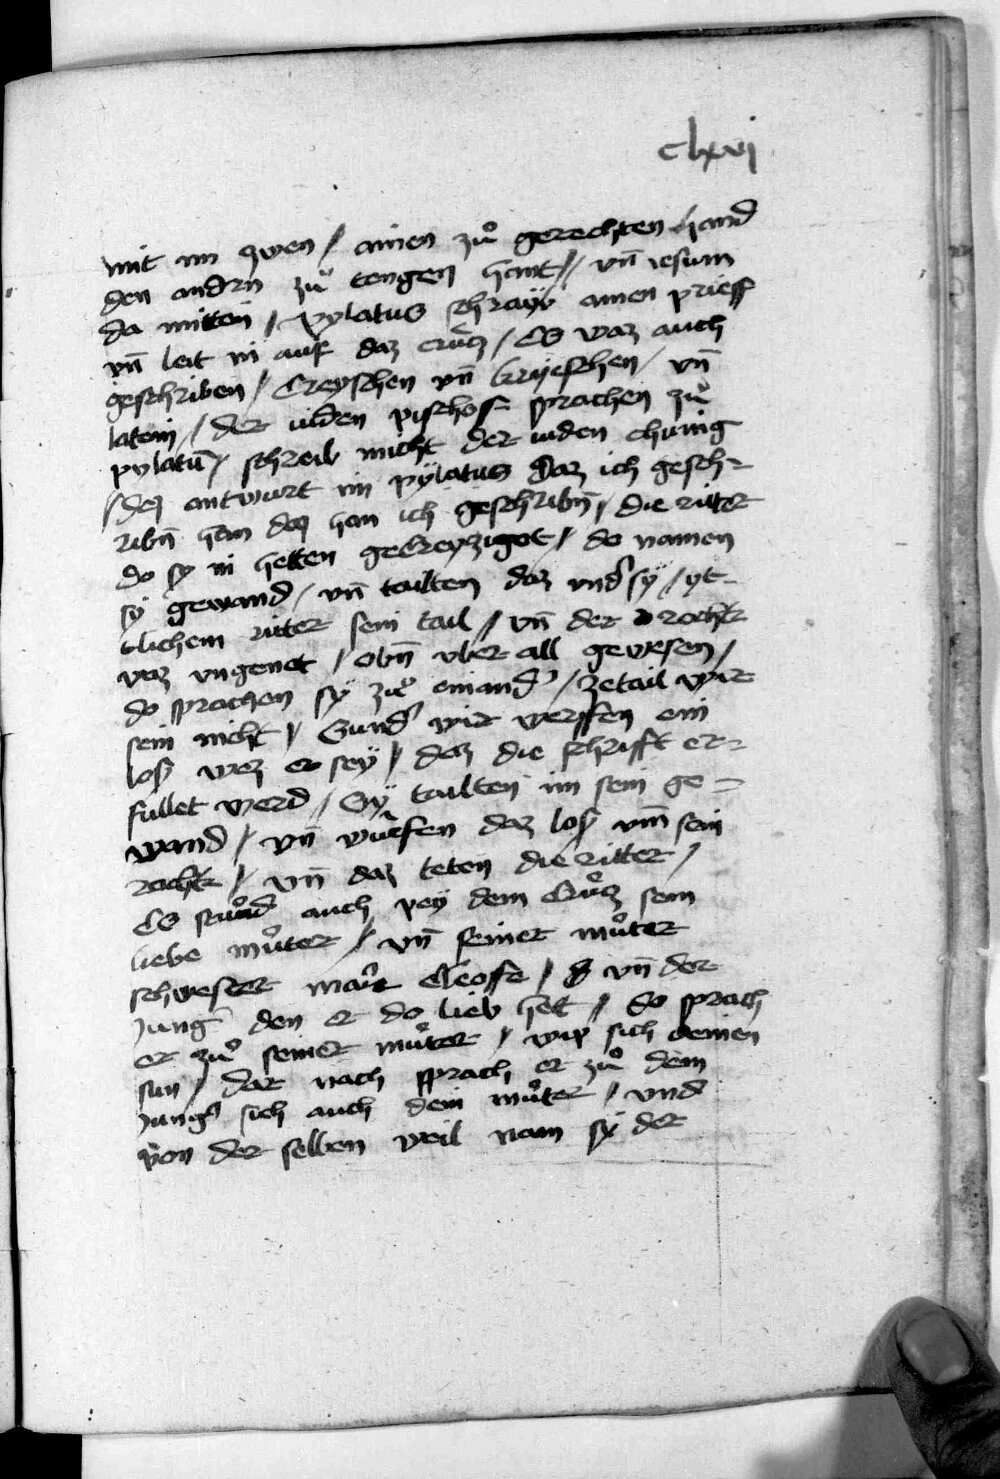 clxvj
mit im zwen / ainen zuͦ gerechten hand
den andrn zuͦ tengen hant // vn̄ iesum
da mitten / Pylatus schrayb ainen prieff
vn̄ leit in auf daz cruͤcz / Es waz auch
geschriben / Ebreyschen vn̄ kryeschen / vn̄
latein / der iuden pischof sprachen zuͦ
pylatū / schreib nicht der iuden chunig
/ dez antwurt im pylatus Daz ich gesch-
ribn̄ han daz han ich geschribn̄ / die ritter
do sy in hetten gecreyzigot / do namen
sy gewand / vn̄ tailten daz vnd' sy / yt-
tlichem ritter sein tail / vn̄ der rockh
waz vngenet / obn̄ vber all gewesen /
do sprachen sy zuͦ einand' / zetail wir
sein nicht / Sund' wir werffen ein
loß wez er sey / daz die schrifft er-
fullet werd / Sy tailten im sein ge-
wand / vn̄ wurfen daz loß vm̄ sein
rockh / vn̄ daz teten die ritter /
Es stuͦnd auch pey dem Cruͤcz sein
liebe muͦter / vn̄ seiner muͦter
schwester mar' Cleoffe / vn̄ der
Jung' den er do lieb het / Do sprach
er zuͦ seiner muͦter / wip sich deinen
sun / dar nach sprach er zuͦ dem
Jung' sich auch dein muͦter / vnd
von der selben weil nam sy der